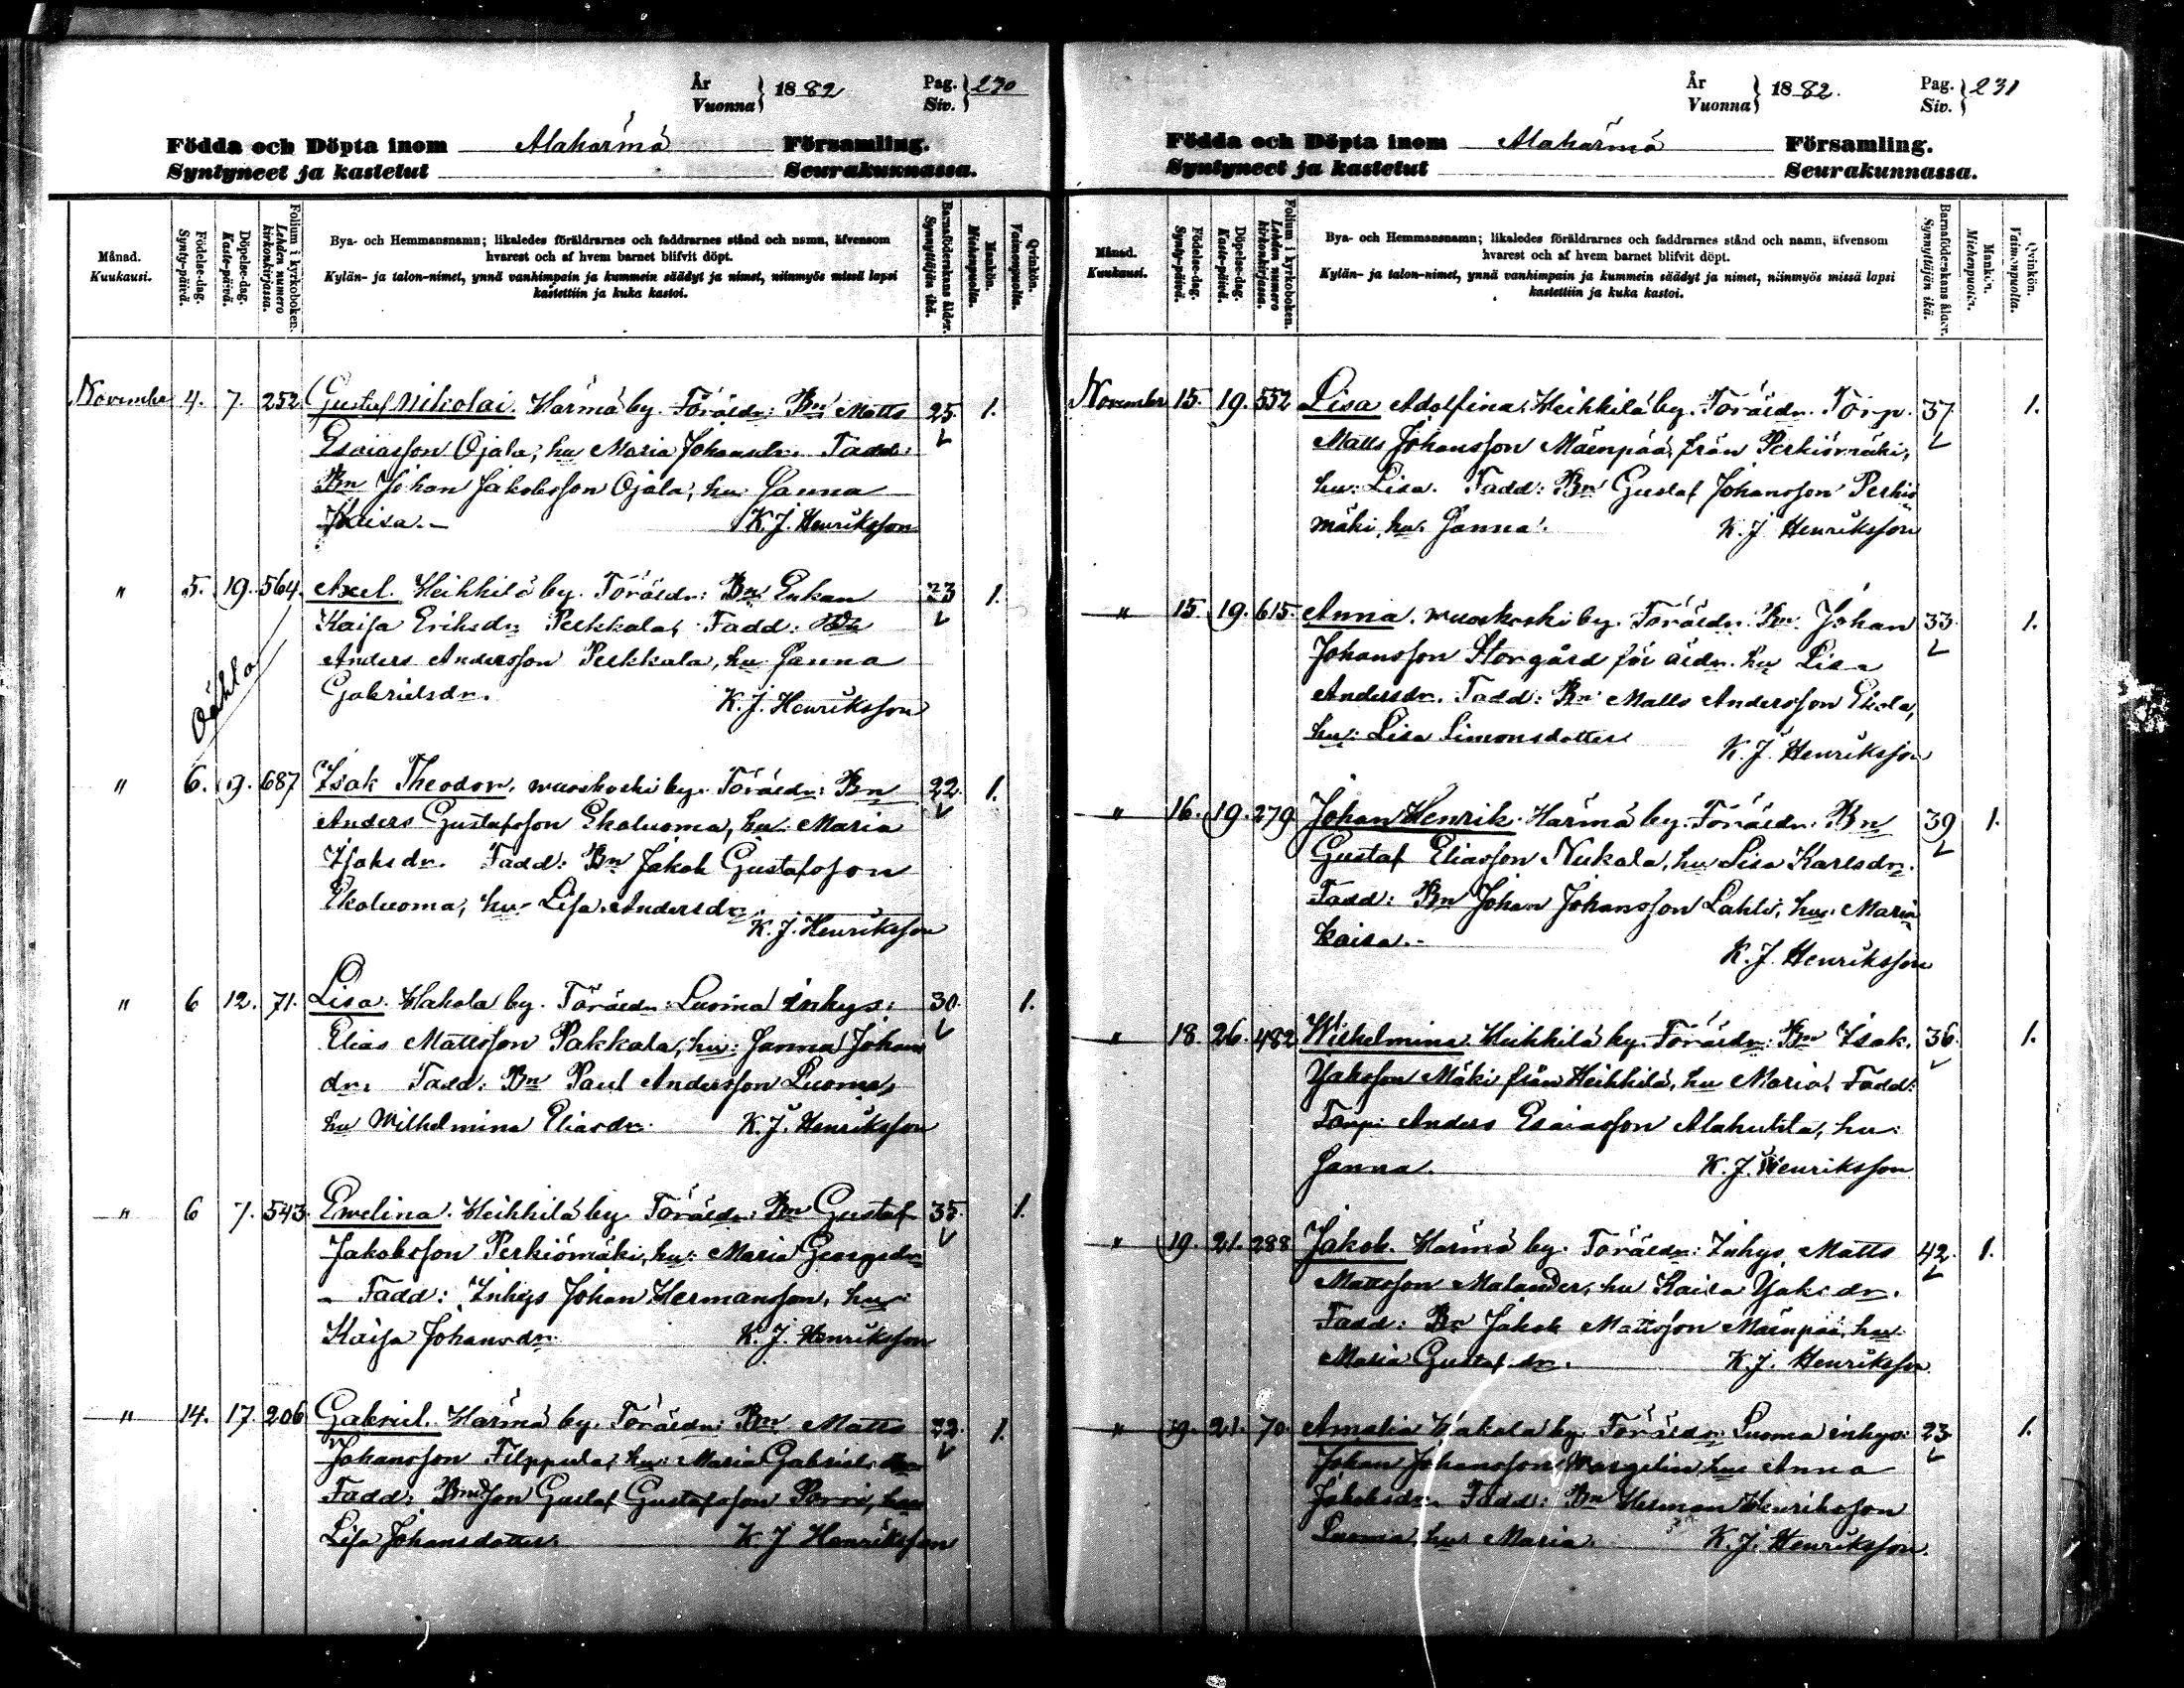 År
Vuonna } 1882
Pag.
Siv. } 230
Födda och Döpta inom Alahärmä Församling.
Syntyneet ja kastetut Seurakunnassa.
Månad.
Kuukausi.
Födelse-dag.
Synty-päivä.
Döpelse-dag.
Kaste-päivä.
Folium i kyrkoboken.
Lehden numero kirkonkirjassa.
Bya- och Hemmansnamn; likaledes föräldrarnes och faddrarnes stånd och namn, äfvensom
hvarest och af hvem barnet blifvit döpt.
Kylän- ja talon-nimet, ynnä vanhimpain ja kummein säädyt ja nimet, niinmyös missä lapsi
kastettiin ja kuka kastoi.
Barnaföderskans ålder.
Synnyttäjän ikä.
Mankön.
Miehenpuolia.
Qvinkön.
Vaimonpuolia.
November 4. 7. 252. Gustaf Nikolai. Härmä by. Föräldr: Bn Matts 25. 1.
Esaiasson Ojala, hu Maria Johansdr. Fadd:
Bn Johan Jakobsson Ojala, hu Sanna
Kaisa. K. J. Henriksson
" 5. 19. 564. Axel. Heikkilä by. Föräldr: Bn Enkan 23 1.
Kaisa Eriksdr Pekkala, Fadd:
Anders Andersson Pekkala, hu Sanna
Gabrielsdr. K. J. Henriksson
" 6. 19. 687 Isak Theodor. Wuoskoski by. Föräldr: Bn 22. 1.
Anders Gustafsson Ekoluoma, hu Maria
Isaksdr. Fadd: Bn Jakob Gustafsson
Ekoluoma, hu Lisa Andersdr.
K. J. Henriksson
" 6 12. 71. Lisa. Hakola by. Föräldr: Luoma inhys: 30. 1.
Elias Mattsson Pakkala, hu: Sanna Johans
dr. Fadd: Bn Paul Andersson Luoma,
hu Wilhelmina Eliasdr. K. J. Henriksson
" 6 7. 543. Ewelina. Heikkilä by. Föräldr: Bn Gustaf 35. 1.
Jakobsson Perkiömäki, hu: Maria Georgsdr
Fadd: Inhys Johan Hermansson, hu
Kaisa Johansdr. K. J. Henriksson
" 14. 17. 206 Gabriel. Härmä by. Föräldr: Bn Matts 1.
Johansson Filppula, hu: Maria Gabrielsdr
Fadd: Bndson Gustaf Gustafsson Porri, hu
Lisa Johansdotter. K. J. Henriksson
År
Vuonna } 1882.
Pag.
Siv. } 231
Födda och Döpta inom Alahärmä Församling.
Syntyneet ja kastetut Seurakunnassa.
Månad.
Kuukausi.
Födelse-dag.
Synty-päivä.
Döpelse-dag.
Kaste-päivä.
Folium i kyrkoboken.
Lehden numero kirkonkirjassa.
Bya- och Hemmansnamn; likaledes föräldrarnes och faddrarnes stånd och namn, äfvensom
hvarest och af hvem barnet blifvit döpt.
Kylän- ja talon-nimet, ynnä vanhimpain ja kummein säädyt ja nimet, niinmyös missä lapsi
kastettiin ja kuka kastoi.
Barnaföderskans ålder.
Synnyttäjän ikä.
Mankön.
Miehenpuolia.
Qvinkön.
Vaimonpuolia.
November 15. 19. 552 Lisa Adolfina. Heikkilä by. Föräldr. Torp. 37. 1.
Matts Johansson Mäenpää, från Perkiömäki,
hu: Lisa. Fadd: Bn Gustaf Johansson Perkiö
mäki, hu. Sanna. K. J. Henriksson
" 15. 19. 615. Anna. Wuoskoski by. Föräldr. Bn. Johan 33. 1.
Johansson Storgård föräldr. hu Lisa
Andersdr. Fadd: Bn Matts Andersson Ekola,
hu: Lisa Simonsdotter
K. J. Henriksson
" 16. 19. 279 Johan Henrik. Härmä by. Föräldr. Bn 39 1.
Gustaf Eliasson Nukala, hu Lisa Karlsdr.
Fadd: Bn Johan Johansson Lahti, hu: Maria
Kaisa.
K. J. Henriksson
" 18. 26. 482 Wilhelmina Heikkilä by. Föräldr: Bn Isak. 36. 1.
Isaksson Mäki från Heikkilä, hu Maria. Fadd:
Torp: Anders Esaiasson Alahuhta, hu:
Sanna. K. J. Henriksson
" 19. 21. 288 Jakob. Härmä by. Föräldr: Inhys Matts 42. 1.
Mattsson Malander, hu Kaisa Isaksdr.
Fadd: Bn Jakob Mattsson Mäenpää, hu
Maria Gustafsdr. K. J. Henriksson
" 19. 21. 70. Amalia Hakola by. Föräldr Luoma inhys: 23. 1.
Johan Johansson Wargelin hu Anna
Jakobsdr. Fadd: Bn Herman Henriksson
Luoma, hu: Maria. K. J. Henriksson.